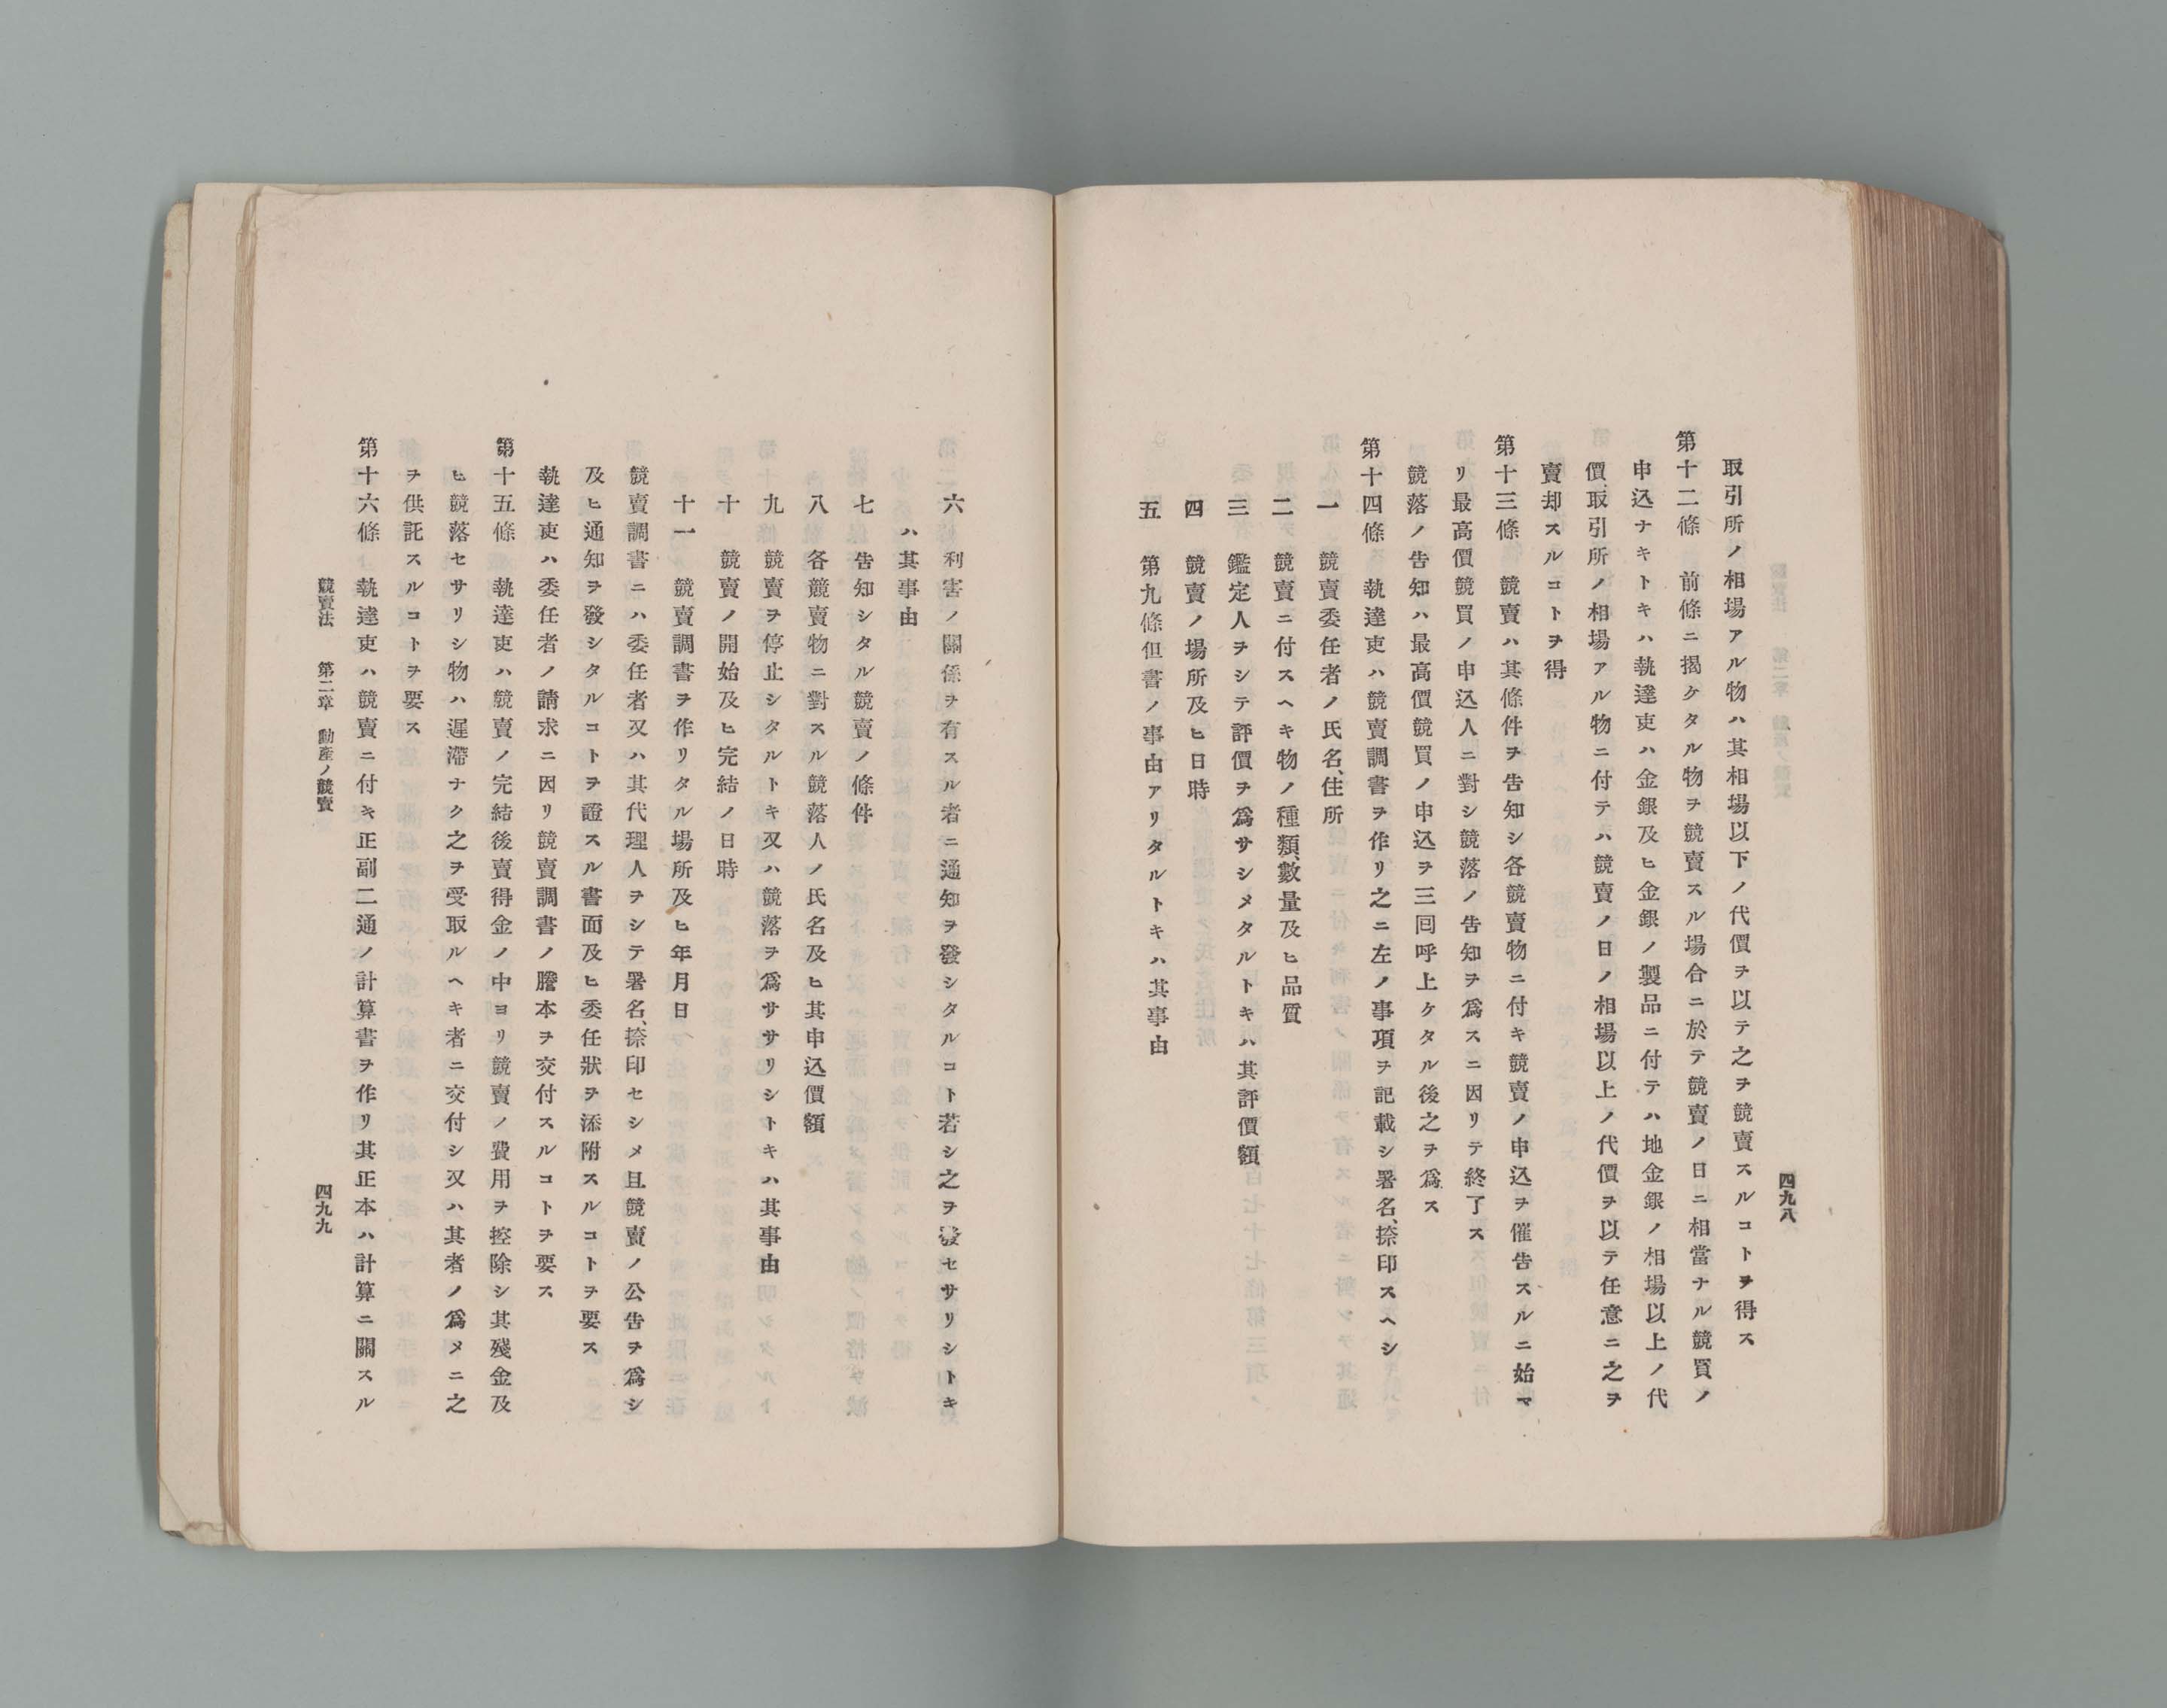 四九八
取引所ノ相場アル物ハ其相場以下ノ代價ヲ以テ之ヲ競賣スルコトヲ得ス
第十二條　前條ニ揭ケタル物ヲ競賣スル場合ニ於テ競賣ノ日ニ相當ナル競買ノ
申込ナキトキハ執達吏ハ金銀及ヒ金銀ノ製品ニ付テハ地金銀ノ相場以上ノ代
價、取引所ノ相場アル物ニ付テハ競賣ノ日ノ相場以上ノ代價ヲ以テ任意ニ之ヲ
賣却スルコトヲ得
第十三條　競賣ハ其條件ヲ告知シ各競賣物ニ付キ競買ノ申込ヲ催告スルニ始マ
リ最高價競買ノ申込人ニ對シ競落ノ告知ヲ爲スニ因リテ終了ス
競落ノ告知ハ最高價競買ノ申込ヲ三回呼上ケタル後之ヲ爲ス
第十四條　執達吏ハ競賣調書ヲ作リ之ニ左ノ事項ヲ記載シ署名、捺印スヘシ
一　競賣委任者ノ氏名、住所
二　競賣ニ付スヘキ物ノ種類、數量及ヒ品質
三　鑑定人ヲシテ評價ヲ爲サシメタルトキハ其評價額
四　競賣ノ場所及ヒ日時
五　第九條但書ノ事由アリタルトキハ其事由
六　利害ノ關係ヲ有スル者ニ通知ヲ發シタルコト若シ之ヲ發セサリシトキ
ハ其事由
七　告知シタル競賣ノ條件
八　各競賣物ニ對スル競落人ノ氏名及ヒ其申込價額
九　競賣ヲ停止シタルトキ又ハ競落ヲ爲ササリシトキハ其事由
十　競賣ノ開始及ヒ完結ノ日時
十一　競賣調書ヲ作リタル場所及ヒ年月日
競賣調書ニハ委任者又ハ其代理人ヲシテ署名、捺印セシメ且競賣ノ公告ヲ爲シ
及ヒ通知ヲ發シタルコトヲ證スル書面及ヒ委任狀ヲ添附スルコトヲ要ス
執達吏ハ委任者ノ請求ニ因リ競賣調書ノ謄本ヲ交付スルコトヲ要ス
第十五條　執達吏ハ競賣ノ完結後賣得金ノ中ヨリ競賣ノ費用ヲ控除シ其殘金及
ヒ競落セサリシ物ハ遲滯ナク之ヲ受取ルヘキ者ニ交付シ又ハ其者ノ爲メニ之
ヲ供託スルコトヲ要ス
第十六條　執達吏ハ競賣ニ付キ正副二通ノ計算書ヲ作リ其正本ハ計算ニ關スル
競賣法　第二章　動產ノ競賣
四九九